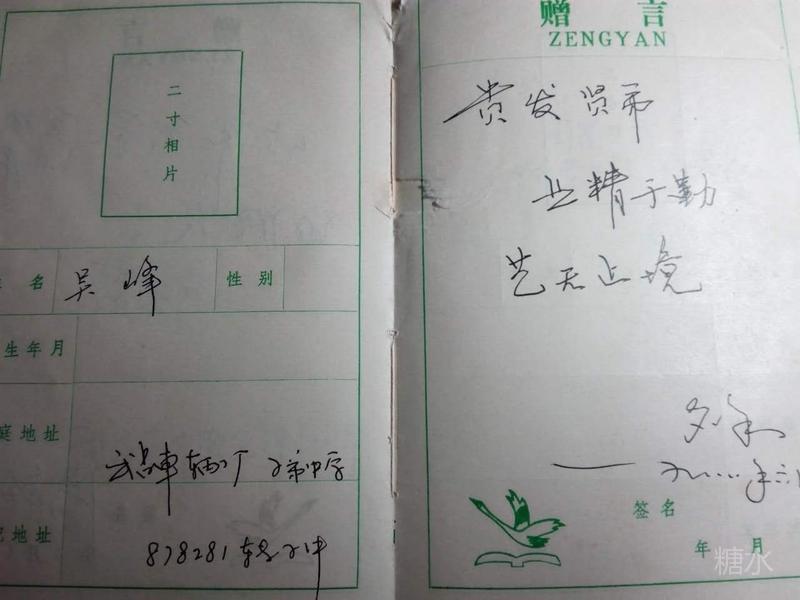 二寸相片
名
吴峰
性别
生年月
庭地址
武昌車辆厂子弟中学
地址
878281转子中
赠言
ZENGYAN
贵发贤弟
业精于勤
艺无止境
签名
年月
糖水